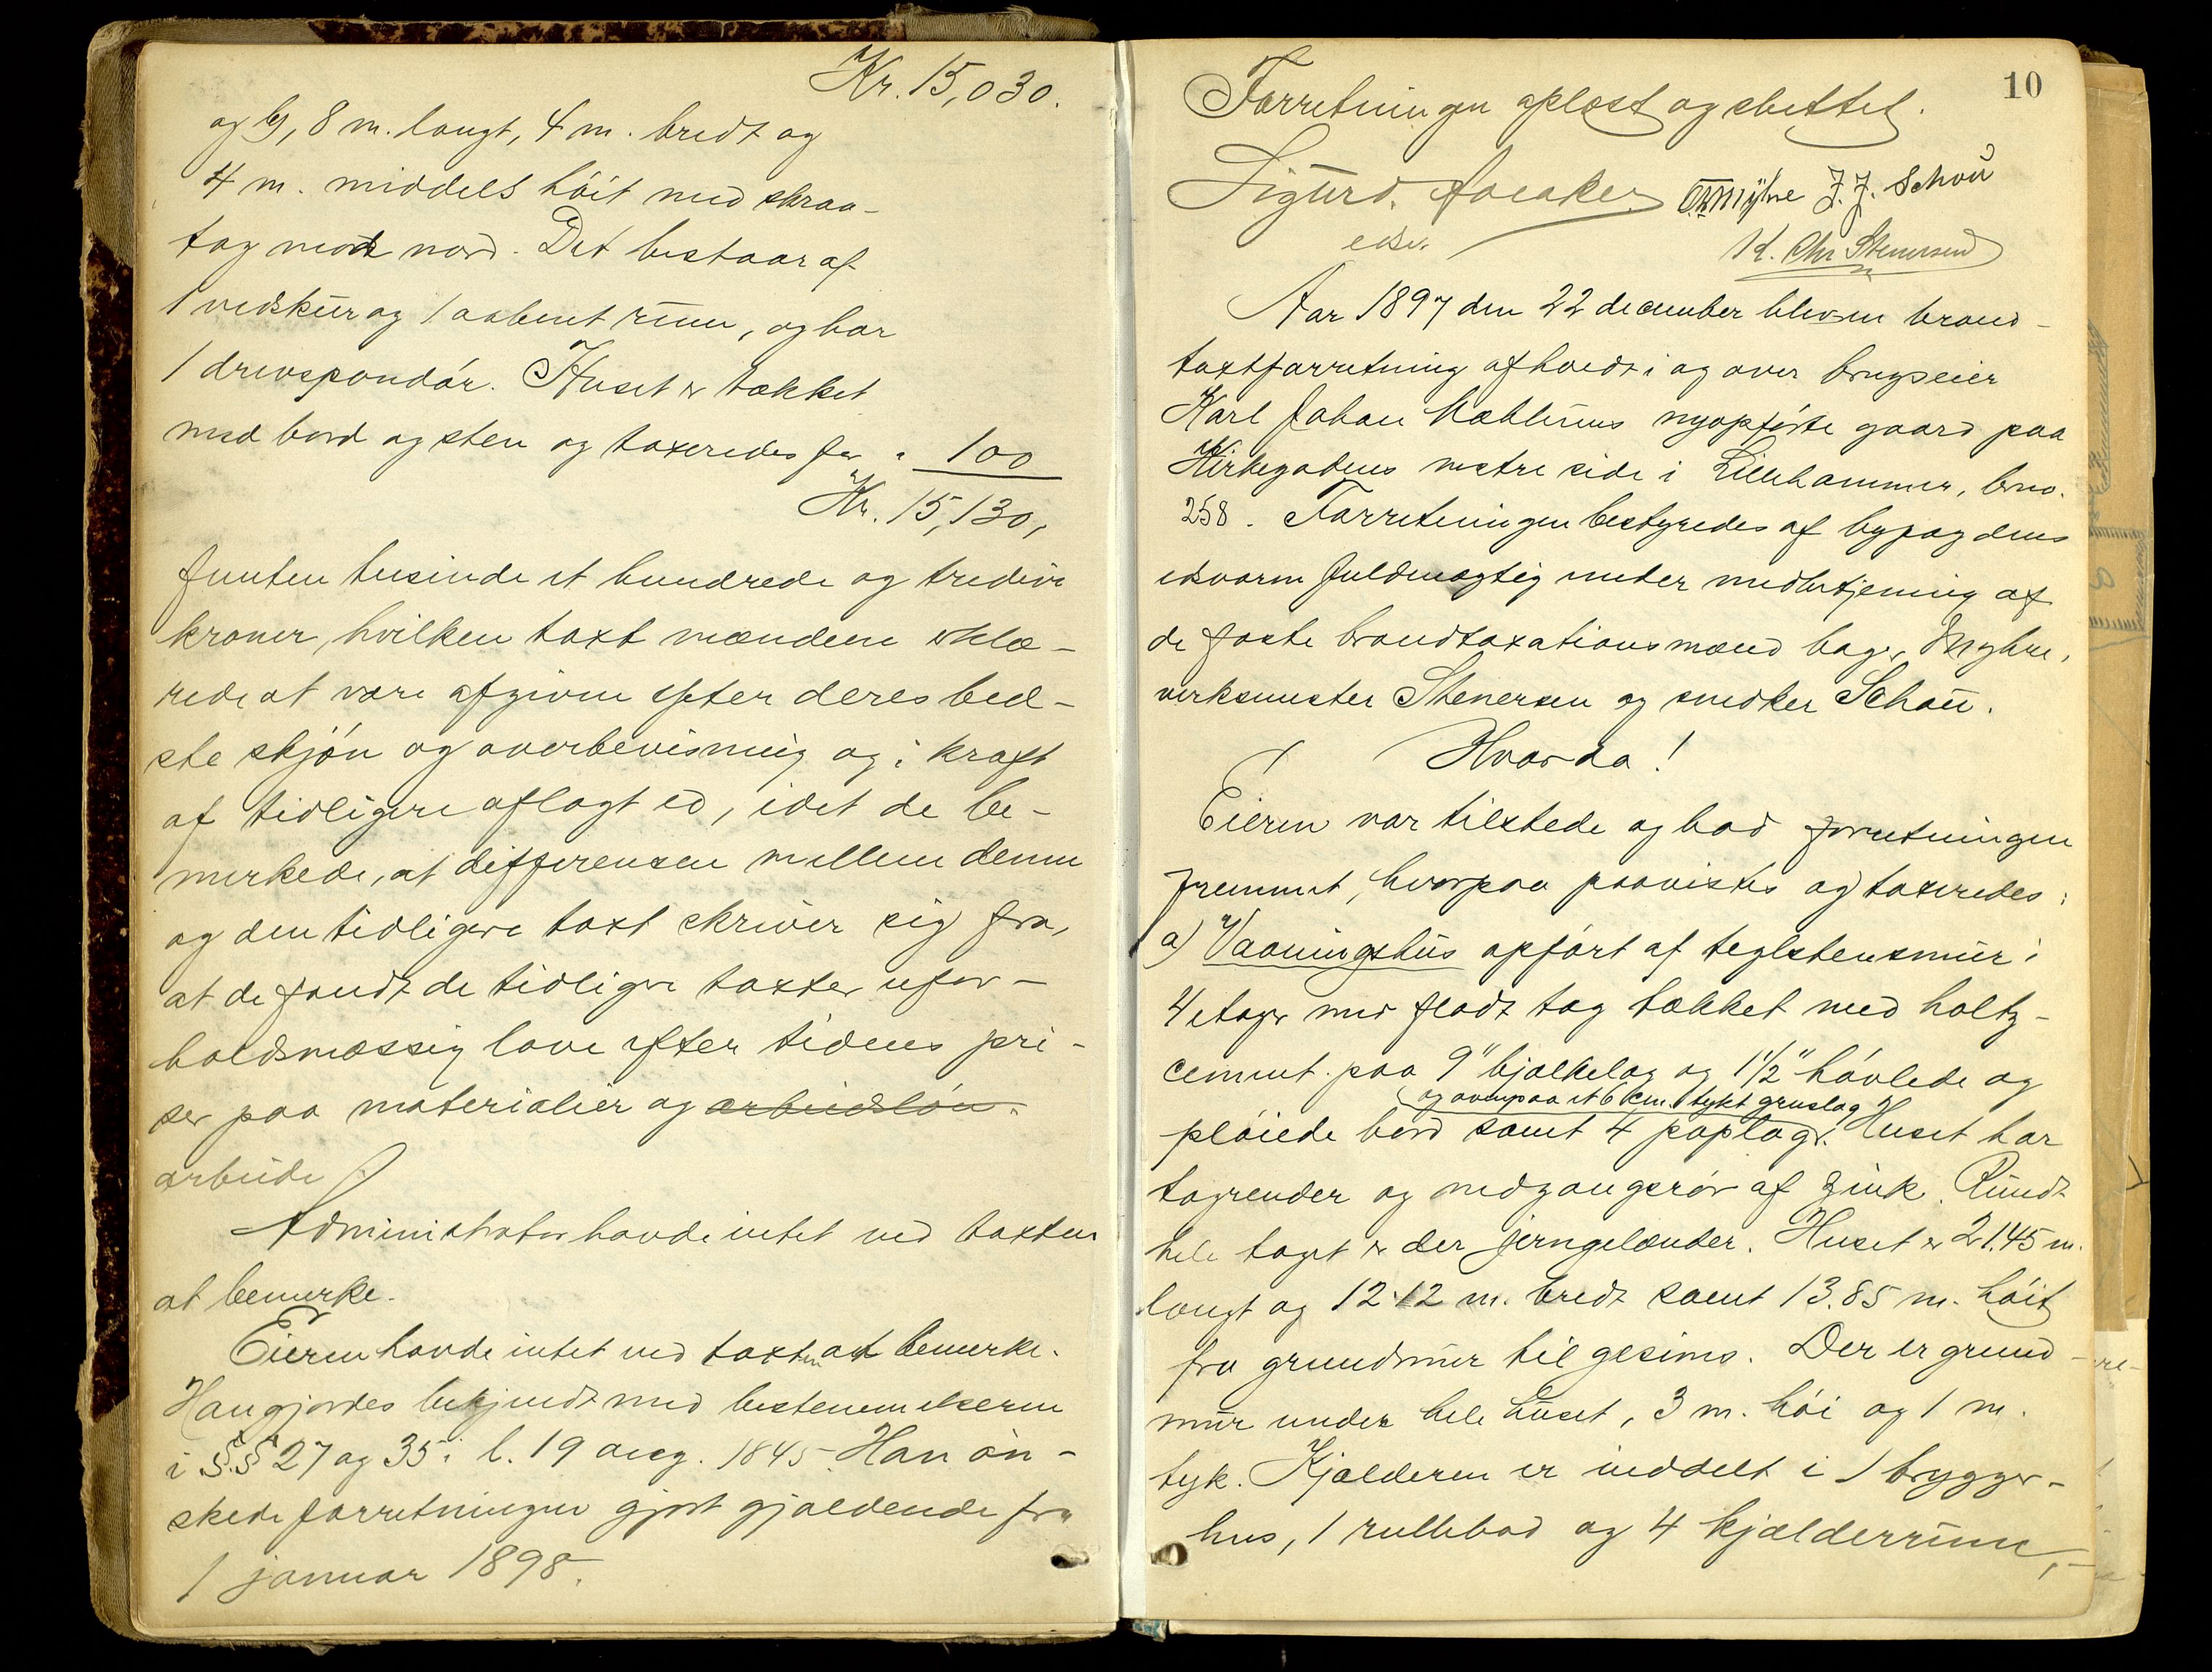 Kr. 15,030.
og b, 8 m. langt, 4 m. bredt og
4 m. middels høit med skraa-
tag mod nord. Det bestaar af
1 vedskur og 1 aabent rum, og har
1 drevspondør. Huset er tækket
med bord og sten og taxeredes for " 100
Kr. 15,130,
femten tusinde et hundrede og tredive
kroner, hvilken taxt mændene erklæ-
rede at være afgiven efter deres bed-
ste skjøn og overbevisning og i kraft
af tidligere aflagt ed, idet de be-
merkede, at differensen mellem denne
og den tidligere taxt skriver sig fra,
at de fandt de tidligere taxter ufor-
holdsmæssig lave efter tidens pri-
ser paa materialier og arbeidsløn.
arbeide.
Administrator havde intet ved taxten
at bemerke.
Eieren havde intet ved taxten at bemerke.
Han gjordes bekjendt med bestemmelserne
i §§ 27 og 35 i l. 19 aug. 1845. Han øn-
skede forretningen gjort gjældende fra
1 januar 1898.
10
Forretningen oplæst og sluttet.
Sigurd. Aaeaker OMyhre J. J. Schou
edsv. K. Chr Stenersen
Aar 1897 den 22 december blev en brand-
taxtforretning afholdt i og over brugseier
Karl Johan Mæhlums nyopførte gaard paa
Kirkegadens vestre side i Lillehammer, brno.
258. Forretningen bestyredes af byfogdens
edsvorne fuldmægtig under medbetjening af
de faste brandtaxationsmænd bager Myhre,
verksmester Stenersen og snedker Schou.
Hvorda!
Eieren var tilstede og bad forretningen
fremmet, hvorpaa paavistes og taxeredes:
a) Vaaningshus opført af teglstensmur i
4 etager med fladt tag tækket med holtz-
cement paa 9" bjælkelag og 1 1/2" høvlede og
og ovenpaa et 6 cm. tykt gruslag
pløiede bord samt 4 paplag. Huset har
tagrender og nedgangsrør af zink. Rundt
hele taget er der jerngelænder. Huset er 21.45 m.
langt og 12.12 m. bredt samt 13.85 m. høit
fra grundmur til gesims. Der er grund-
mur under hele huset, 3 m. høi og 1 m.
tyk. Kjælderen er inddelt i 1 brygger-
hus, 1 rullebod og 4 kjælderrum,-